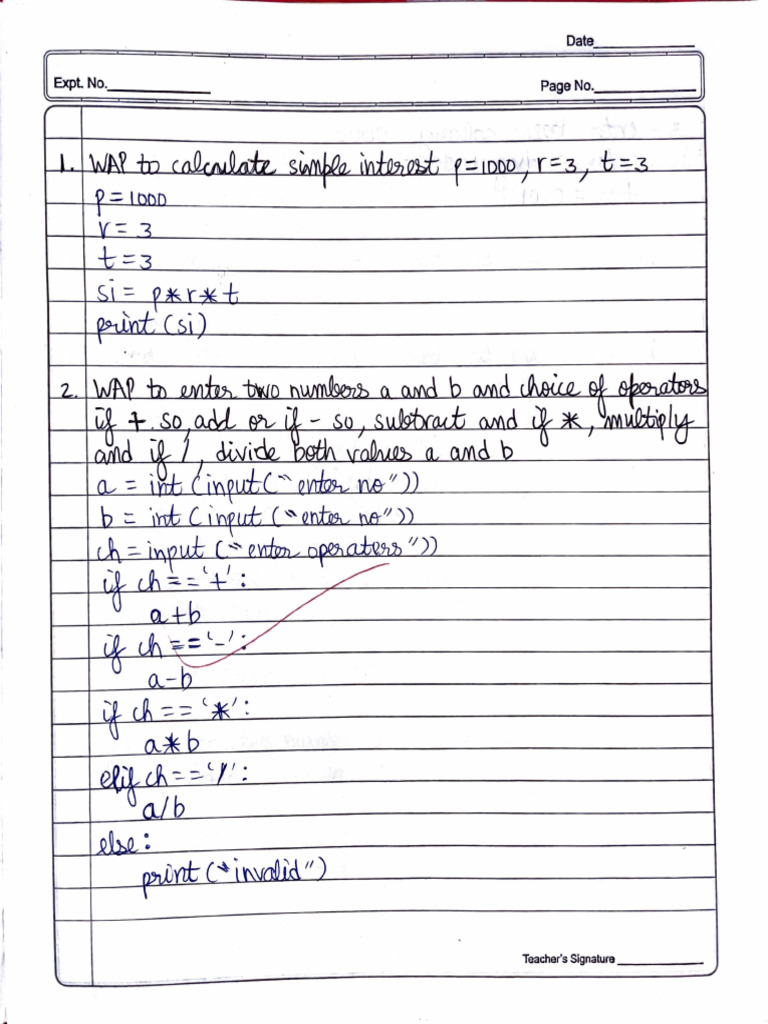 Date
Expt. No.
Page No.
1. WAP to calculate simple interest p=1000, r=3, t=3
p=1000
r=3
t=3
si= p*r*t
print(si)
2. WAP to enter two numbers a and b and choice of operators
if + so, add or if - so, subtract and if *, multiply
and if /, divide both values a and b
a = int(input("enter no"))
b = int(input("enter no"))
ch=input("enter operaters"))
if ch=='+':
a+b
if ch=='-':
a-b
if ch=='*':
a*b
elif ch=='/':
a/b
else:
print("invalid")
Teacher's Signature